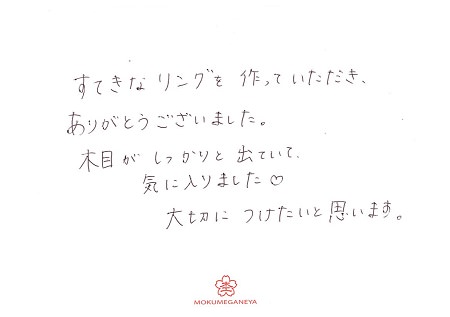 すてきな リングを 作っていただき、
ありがとうございました。
木目が しっかりと 出ていて、
気に入りました♡
大切に つけたいと 思います。
MOKUMEGANEYA